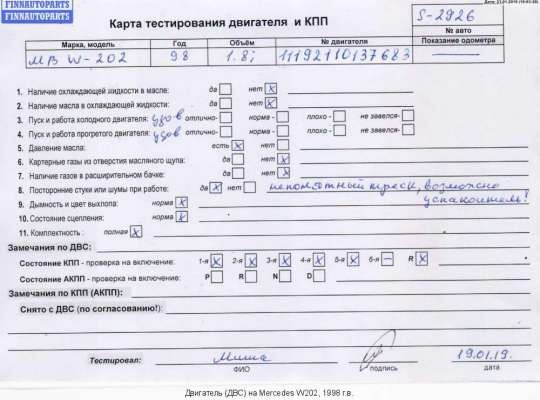 FINNAUTOPARTS
FINNAUTOPARTS
Карта тестирования двигателя и КПП
S-2926
№ авто
Марка, модель Год Объём № двигателя Показание одометра
MB W-202 98 1.8i 11192110137683
1. Наличие охлаждающей жидкости в масле: да нет x
2. Наличие масла в охлаждающей жидкости: да нет x
3. Пуск и работа холодного двигателя: удов отлично- норма - плохо - не завелся-
4. Пуск и работа прогретого двигателя: удов отлично- норма - плохо - не завелся-
5. Давление масла: есть x нет
6. Картерные газы из отверстия масляного щупа: да нет x
7. Наличие газов в расширительном бачке: да нет x
8. Посторонние стуки или шумы при работе: да x нет непонятный треск, возможно
успокоитель!
9. Дымность и цвет выхлопа: норма x
10. Состояние сцепления: норма x
11. Комплектность : полная x
Замечания по ДВС:
Состояние КПП - проверка на включение: 1-я x 2-я x 3-я x 4-я x 5-я x 6-я – R x
Состояние АКПП - проверка на включение: P R N D
Замечания по КПП (АКПП):
Снято с ДВС (по согласованию!):
Тестировал: Миша 19.01.19
ФИО подпись дата
Двигатель (ДВС) на Mercedes W202, 1998 г.в.